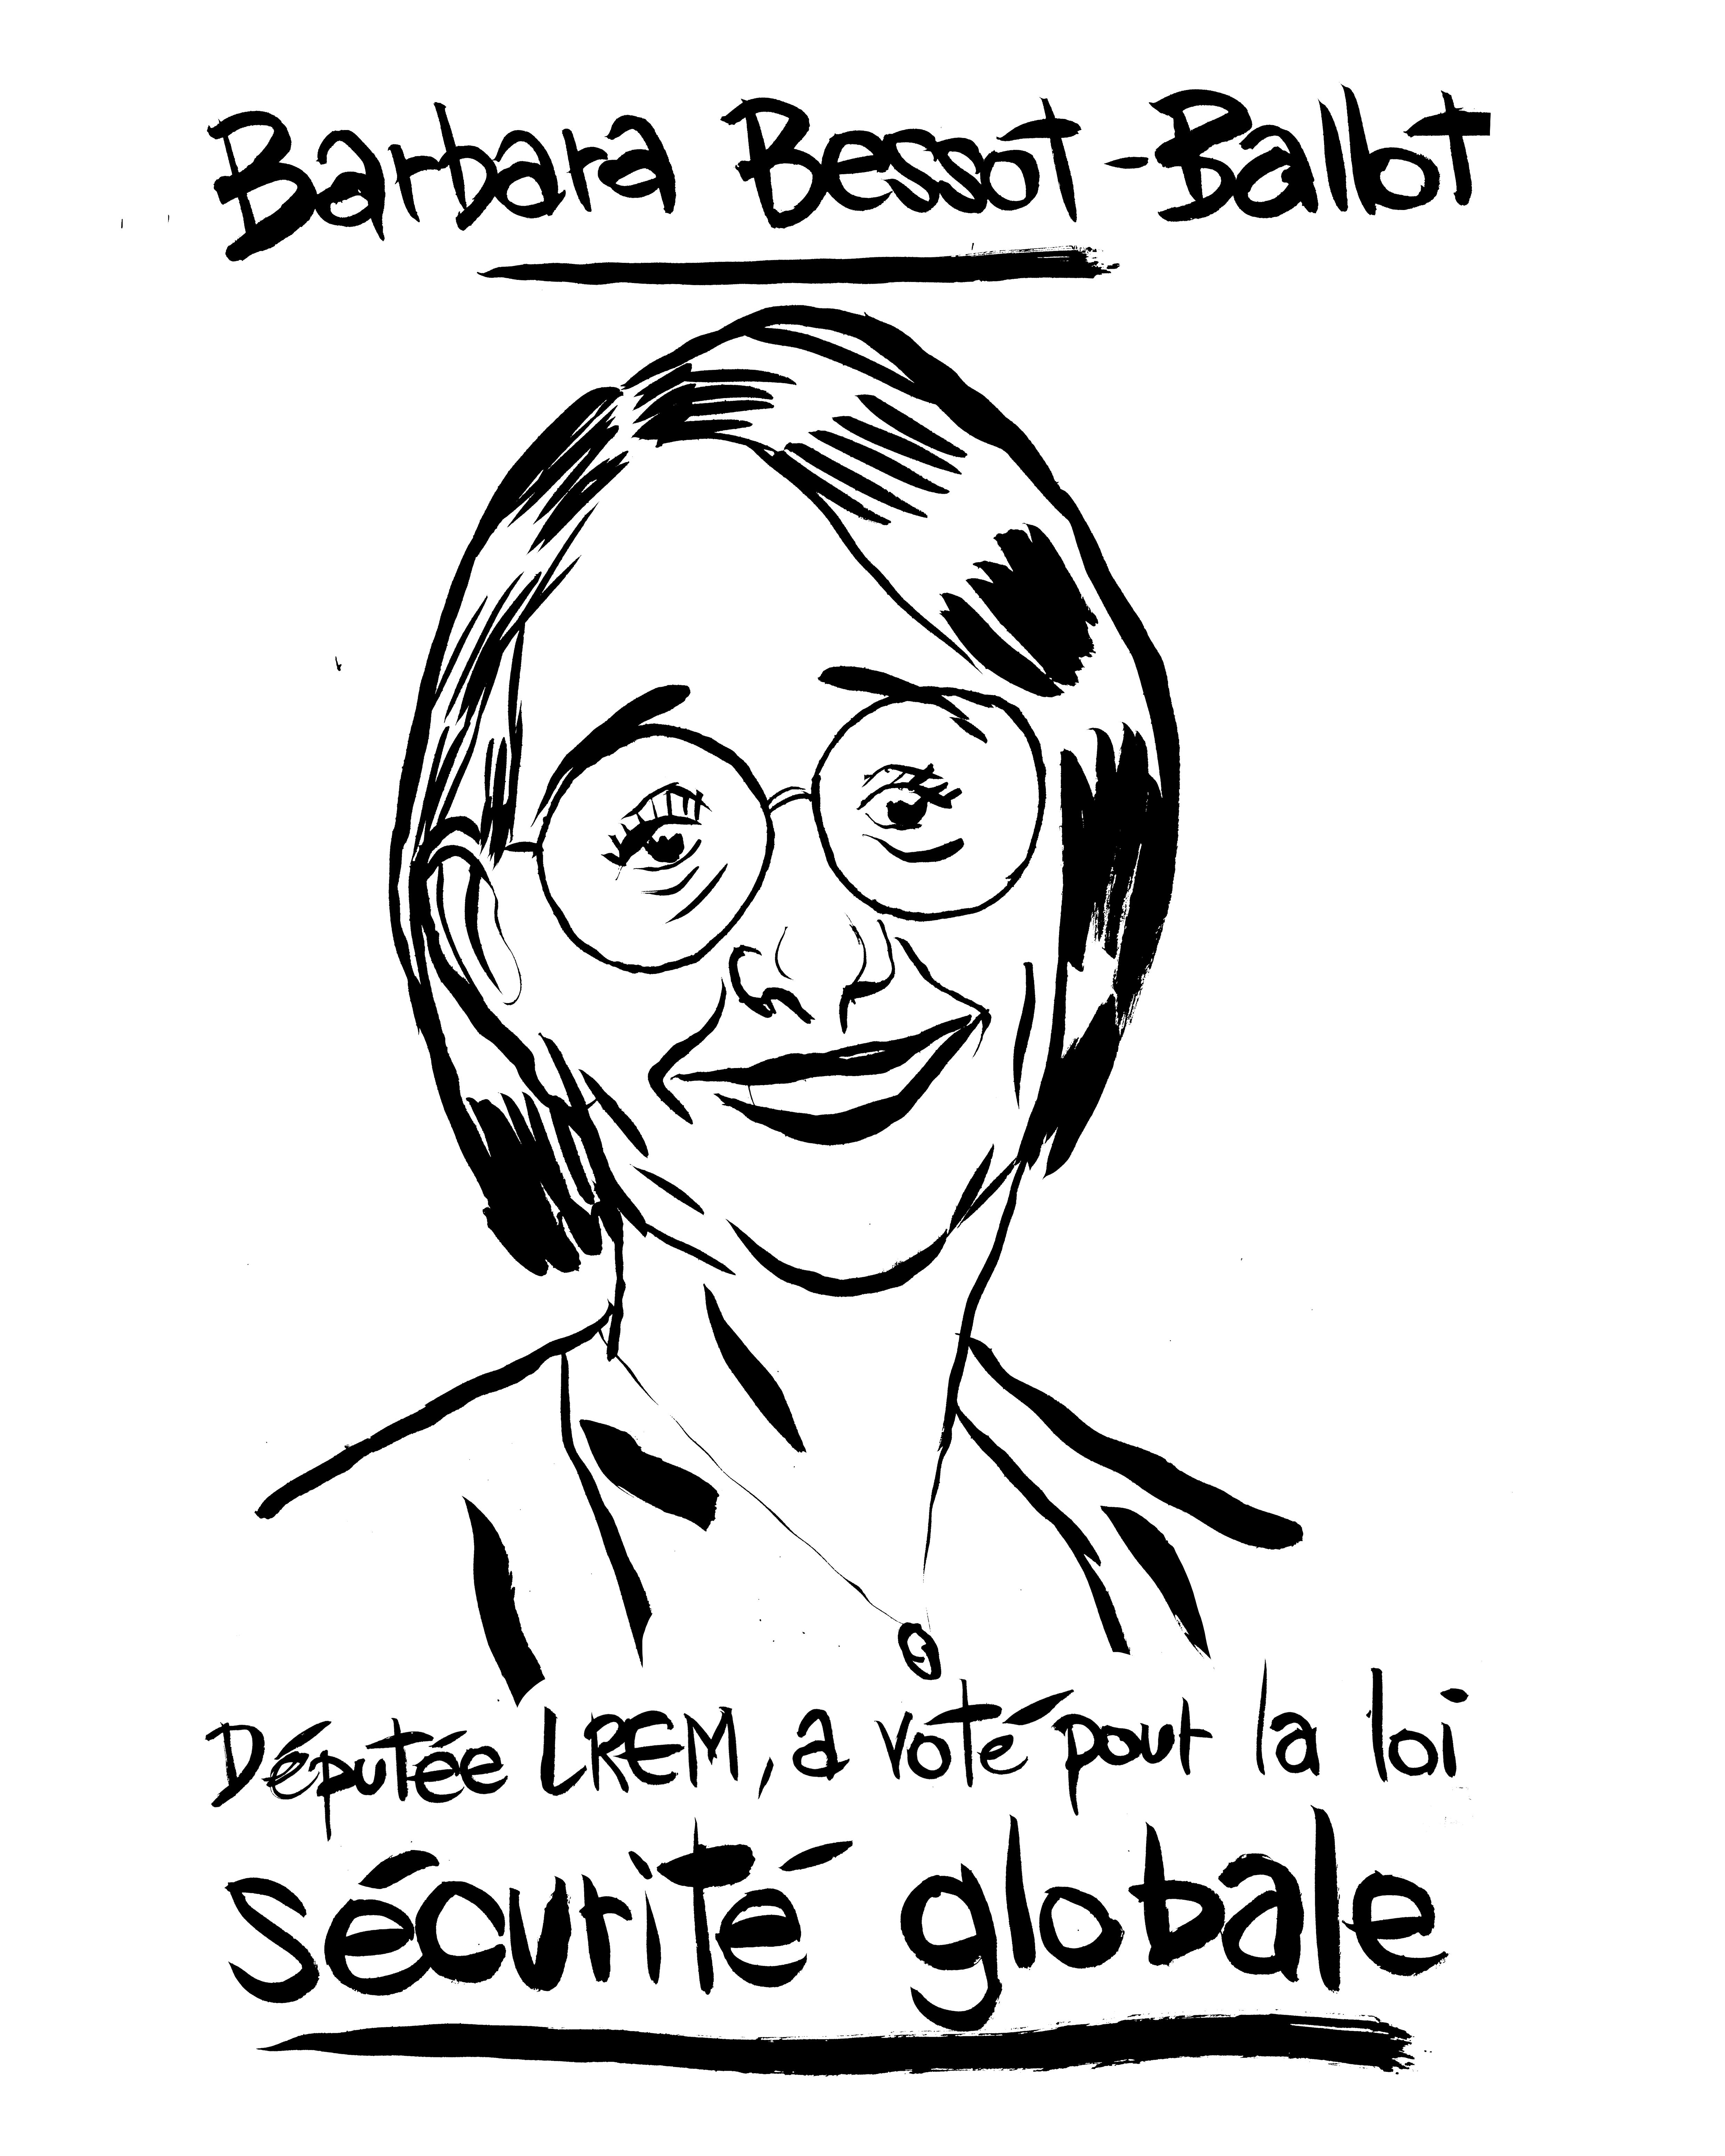 Barbara Bessot-Ballot
Députée LREM, a voté pour la loi
sécurité globale